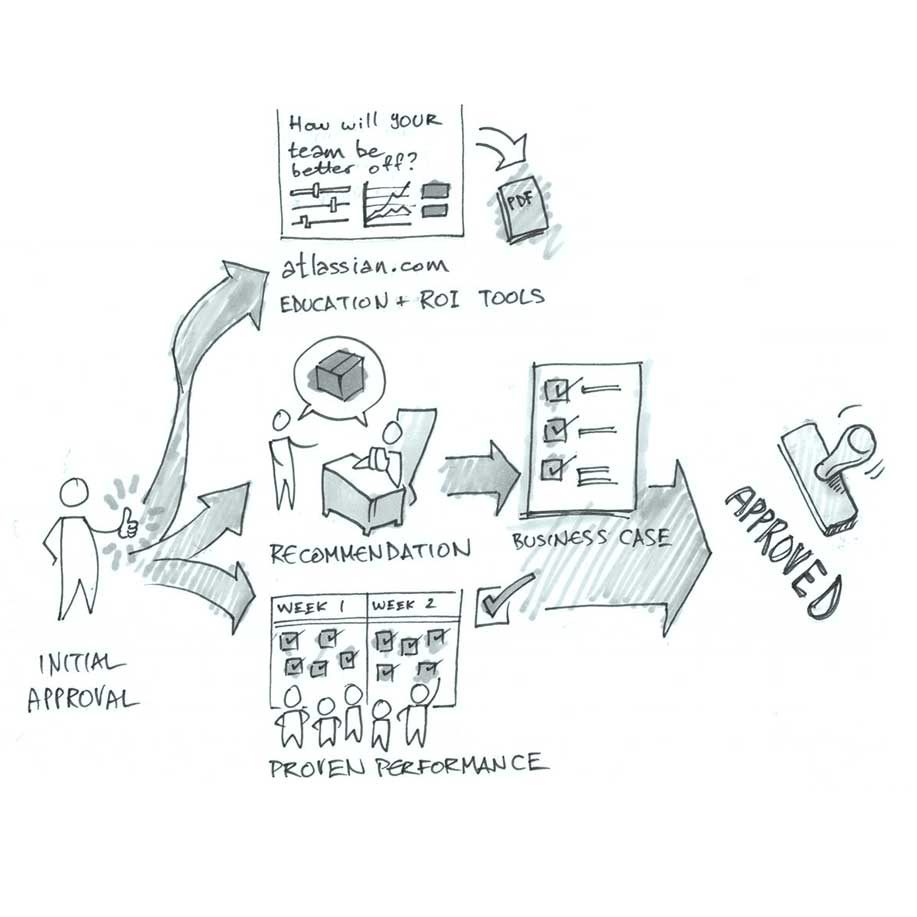 How will YOUR
team be
better off?
PDF
atlassian.com
EDUCATION + ROI TOOLS
RECOMMENDATION
BUSINESS CASE
APPROVED
WEEK 1
WEEK 2
INITIAL
APPROVAL
PROVEN PERFORMANCE